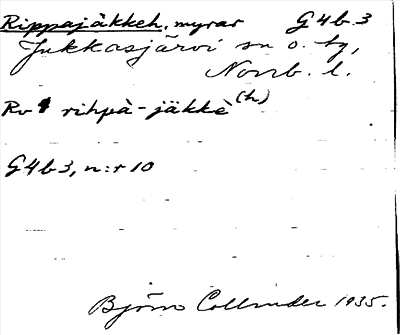 Rippajäkkeh, myrar G4b3
Jukkasjärvi sn o. tg,
Norrb. l.
Rv rihpà-jäkkè(h)
G4b3, n:r 10
Björn Collinder 1935.